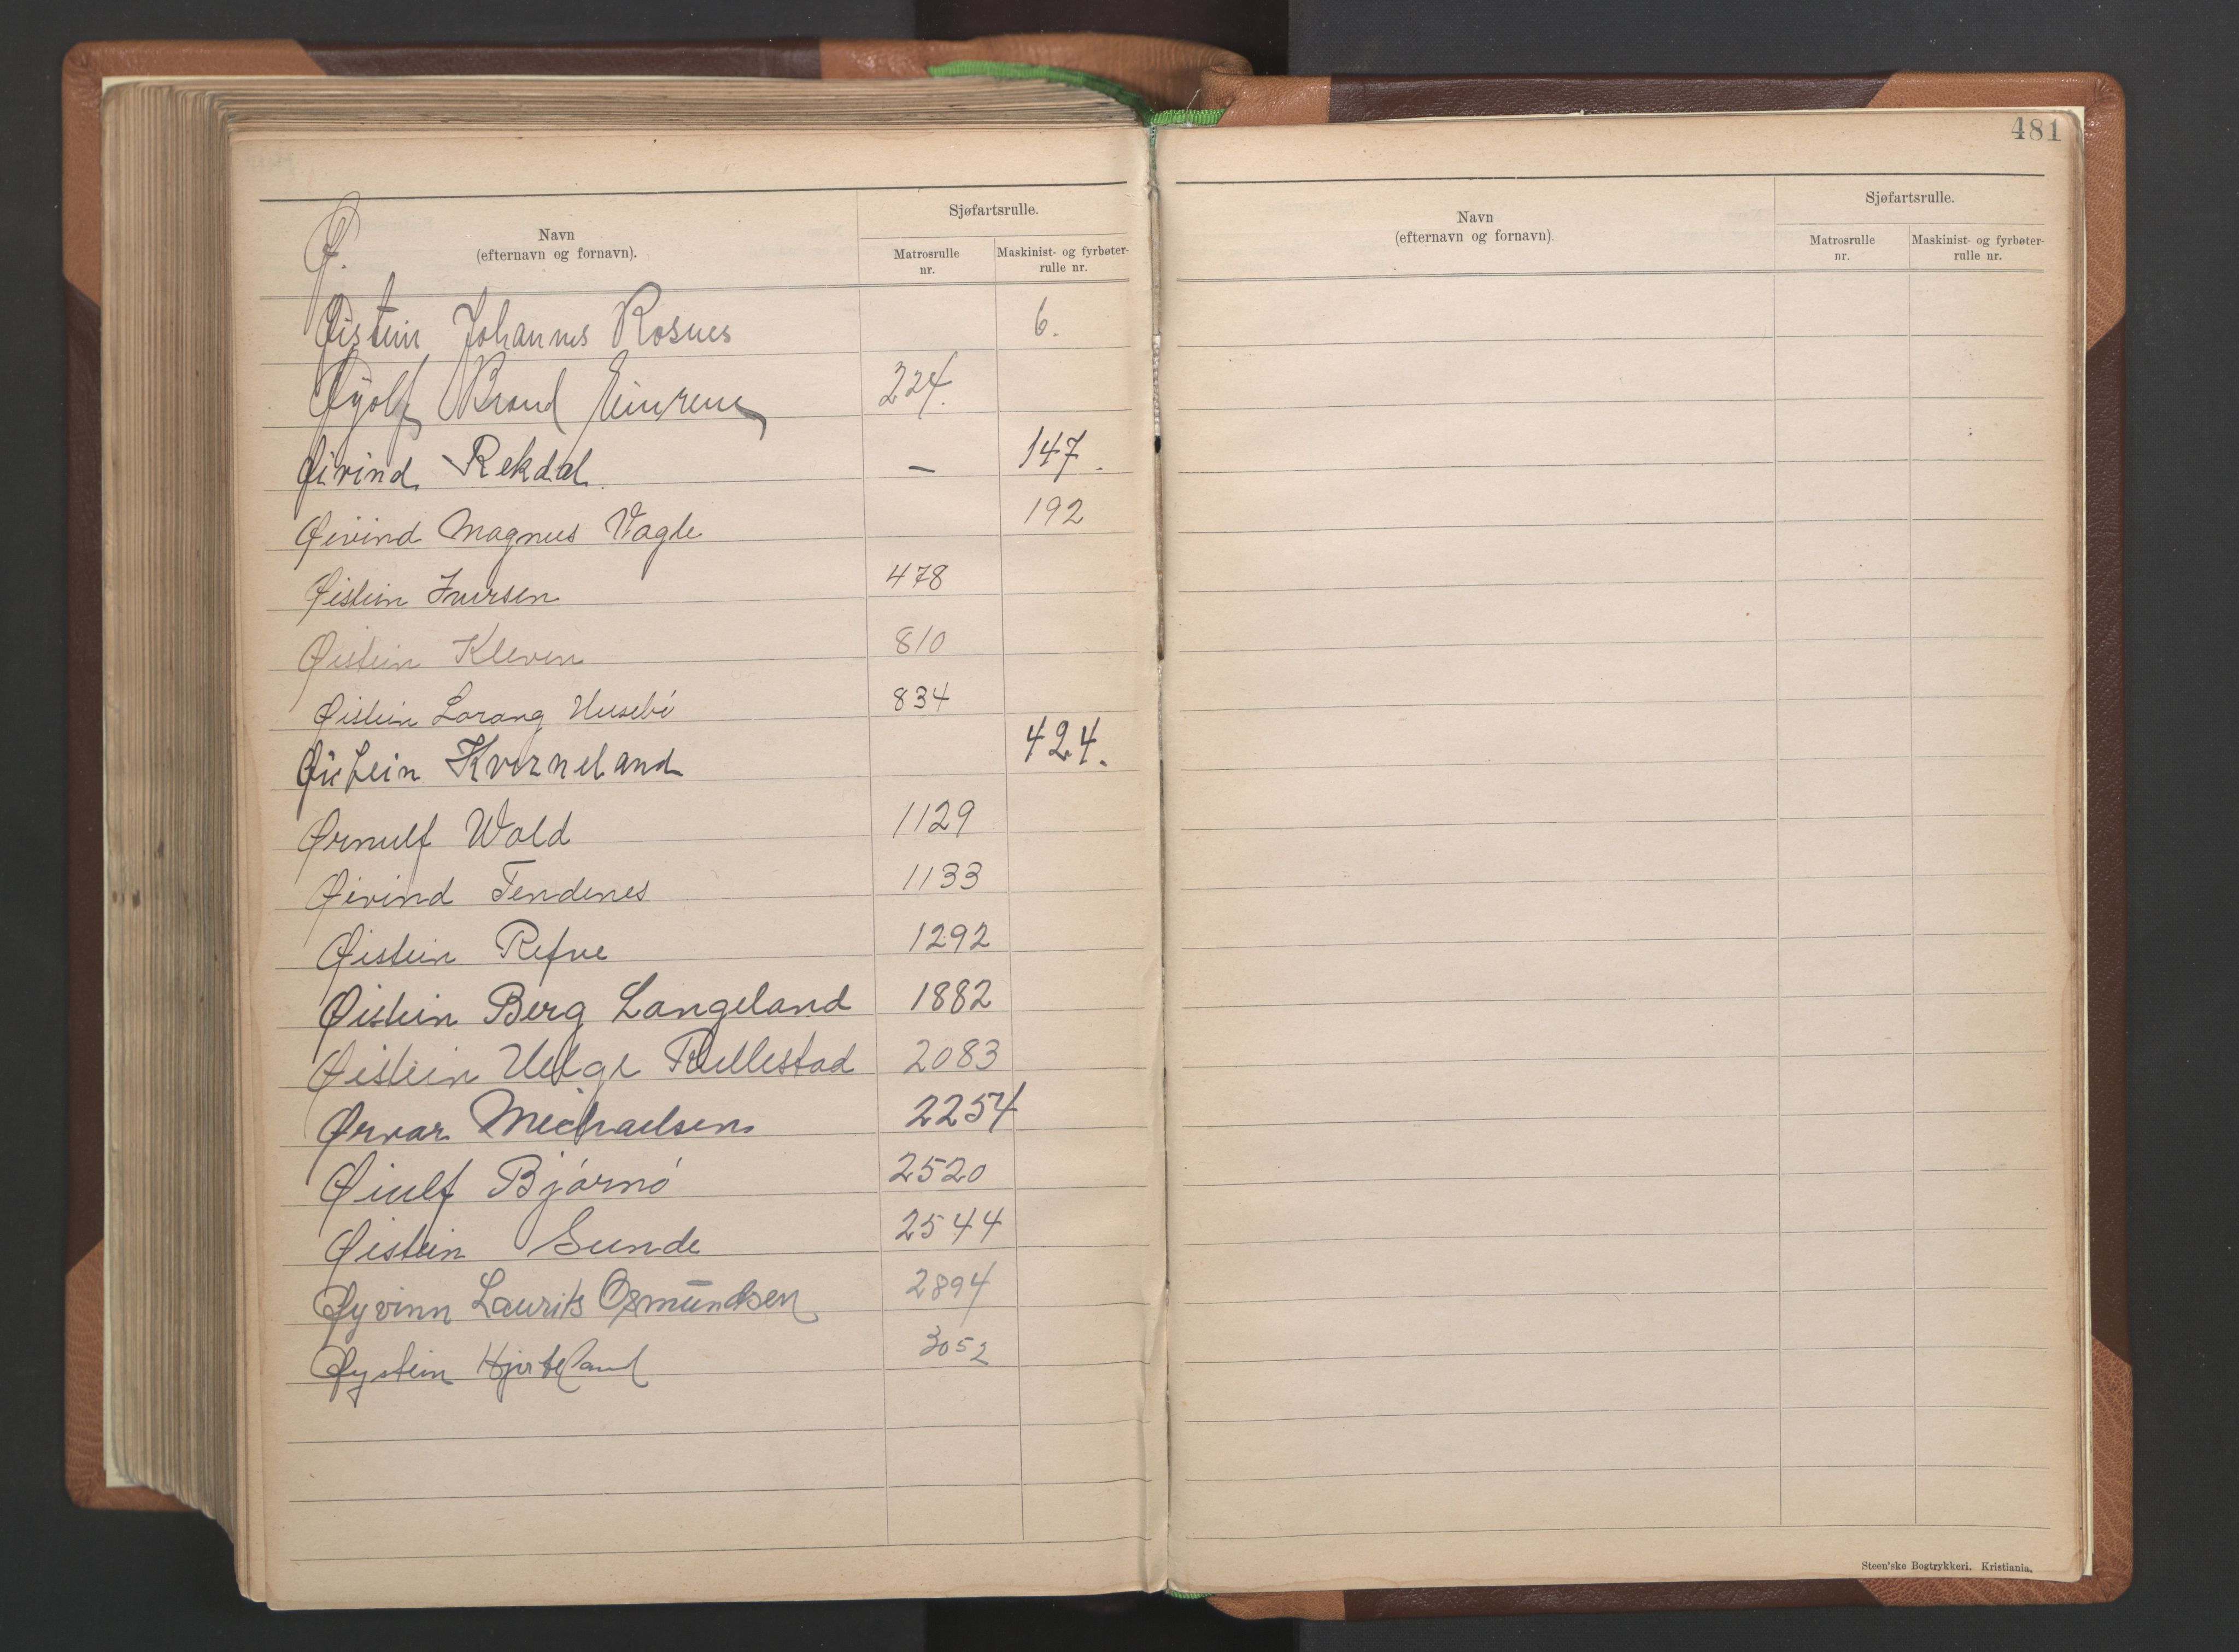 Ø.
Navn
(efternavn og fornavn).
Sjøfartsrulle.
Matrosrulle
nr.
Maskinist- og fyrbøter-
rulle nr.
Øistein Johannes Rosnes 6.
Øyolf Brand Einrem 224.
Øivind Rekdal. – 147.
Øivind Magnus Vagle 192
Øistein Iversen 478
Øistein Kleven 810
Øistein Lorang Husebö 834
Øistein Kverneland 424.
Ørnulf Wold 1129
Øivind Tendenes 1133
Øistein Refve 1292
Øistein Berg Langeland 1882
Øistein Helge Tullestad 2083
Ørvar Michaelsen 2254
Øiulf Bjørnø 2520
Øistein Sunde 2544
Øyvinn Laurits Osmundsen 2894
Øystein Hjorteland 3052
481
Navn
(efternavn og fornavn).
Sjøfartsrulle.
Matrosrulle
nr.
Maskinist- og fyrbøter-
rulle nr.
Steen'ske Bogtrykkeri. Kristiania.